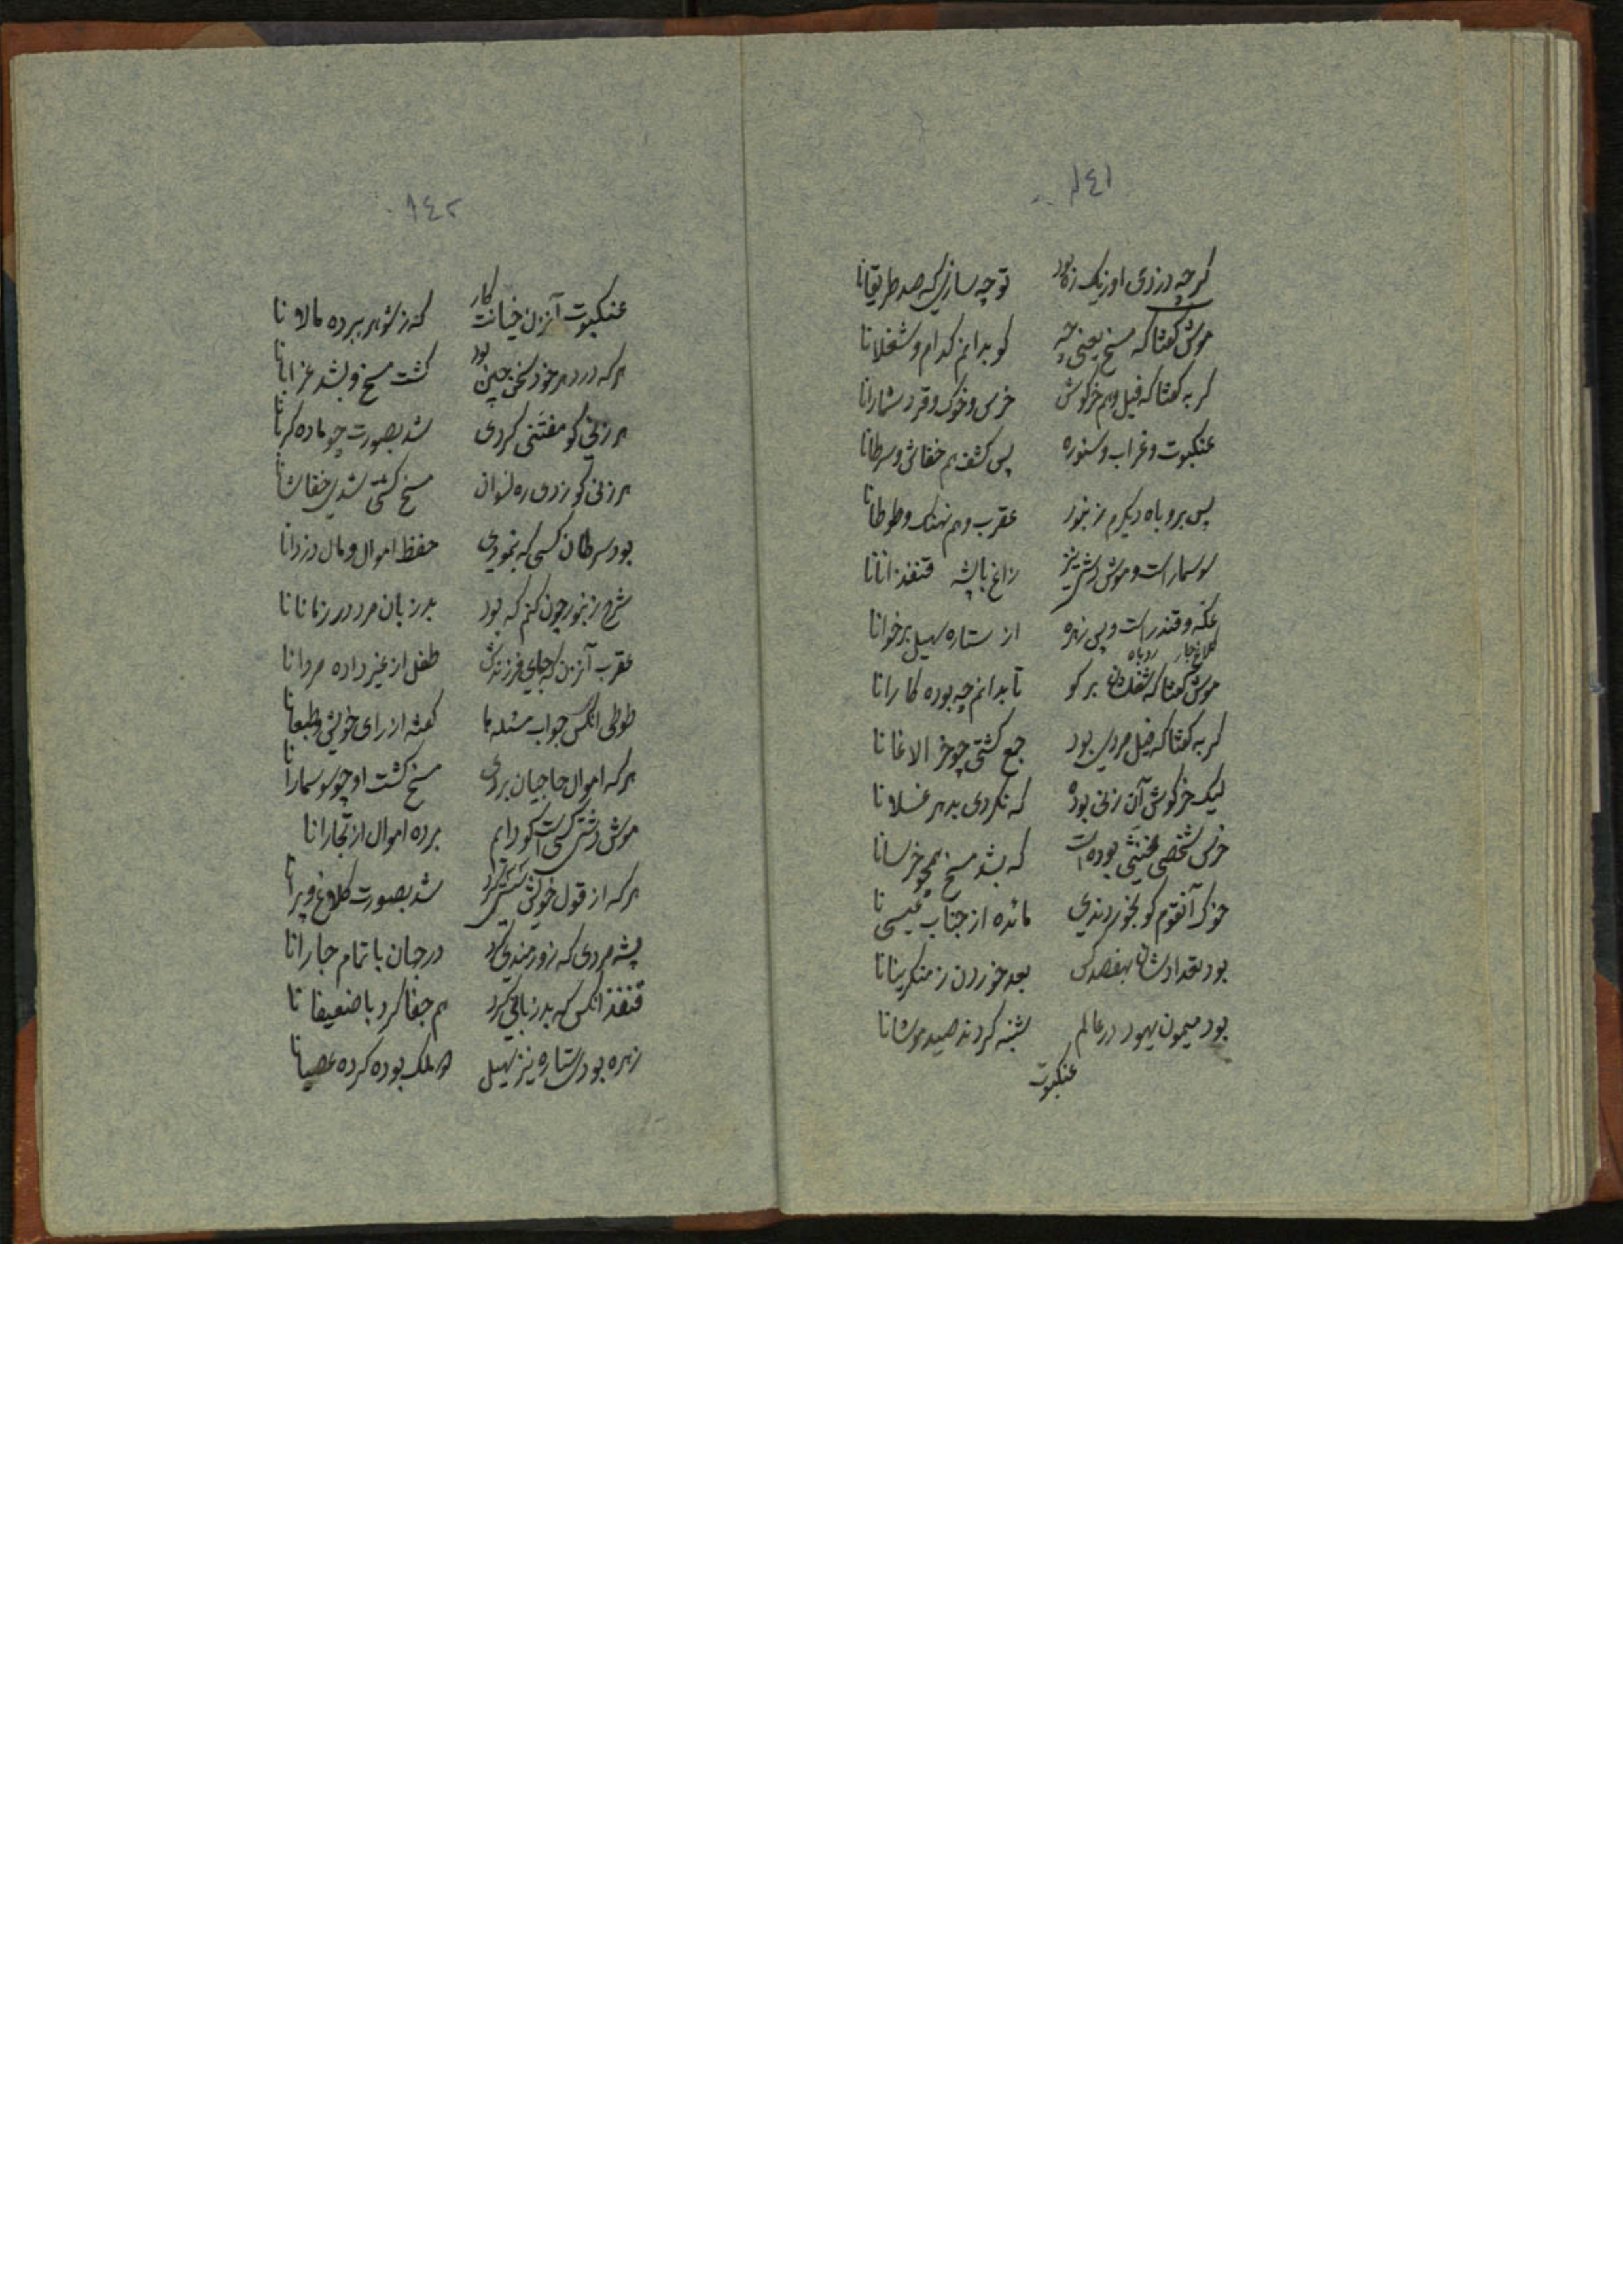 ١٤١
گرچه دزدی او ز یک ره بود تو چه سازی که صد طریقانا
موش گفتا که مسخ یعنی چه کو بدانم کدام و شغلانا
گربه گفتا که فیل و هم خرگوش خرس و خوک و قرد شمارانا
عنکبوت و غراب و سنوره پس کشف هم خفاش و سرطانا
پس برو باه دیگرم زنبور عقرب و هم نهنک و طوطانا
سوسمار است و موش دشتی نیز زاغ با پشه قنفذانانا
عکه و قندر است و پی زهره از ستاره سهیل برخوانا
کلاغ روباه
موش گفتا که شغلشان بر گو تا بدانم چه بوده کارانا
گربه گفتا که فیل مردی بود جمع گشتی چو خر الاغانا
لیک خرگوش آن زنی بوده که نکردی بدهر غسلانا
خرس شخصی مخنثی بوده است که بشد مسخ همچو خرسانا
خوک آنقوم کو بخوردندی مائده از جناب عیسی نا
بود تعدادشان بهفصد کس بعد خوردن ز منکرینانا
بود میمون یهود در عالم شنبه کردند صید موشانا
عنکبوت
١٤٢
عنکبوت آنزن خیانت کار که ز شوهر ببرده مالانا
هر که در دهر خود سخن چین بود گشت مسخ و بشد غرابانا
هر زنی کو مفتنی کردی شد بصورت چو ماده گربانا
هر زنی کو زدی ره نسوان مسخ گشتی شدی خفاشانا
بود سرطان کسی که بنمودی حفظ اموال و مال دزدانا
شرح زنبور چون کنم که بود بد زبان مرد در زمانانا
عقرب آنزن که جای فرزندش طفل از غیر داده مردانا
طوطی انکس جواب مسئله ها گفته از رای خویش و طبعانا
هر که اموال حاجیان بردی مسخ گشت او چو سوسمارانا
موش دشتی کسی است کو دایم برده اموال از تجارانا
هر که از قول خویش شد بصورت کلاغ ویرانا
پشه مردی که زورمندی کرد در جهان با تمام جارانا
قنفذ انکس که بد زبانی کرد هم جفا کرد با ضعیفانا
زهره بود ستاره نیز سهیل دو ملک بوده کرده عصیانا